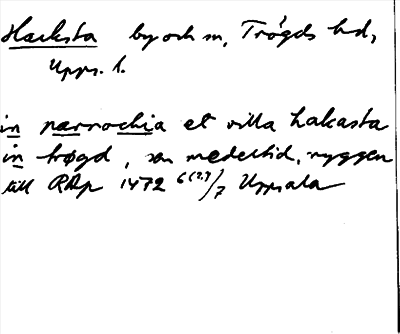 Hacksta by och sn, Trögds hd,
Upps. l.
in parrochia et villa hakasta
in trøgd, sen medeltid, ryggen
till RAp 1472 6(?)/7 Uppsala